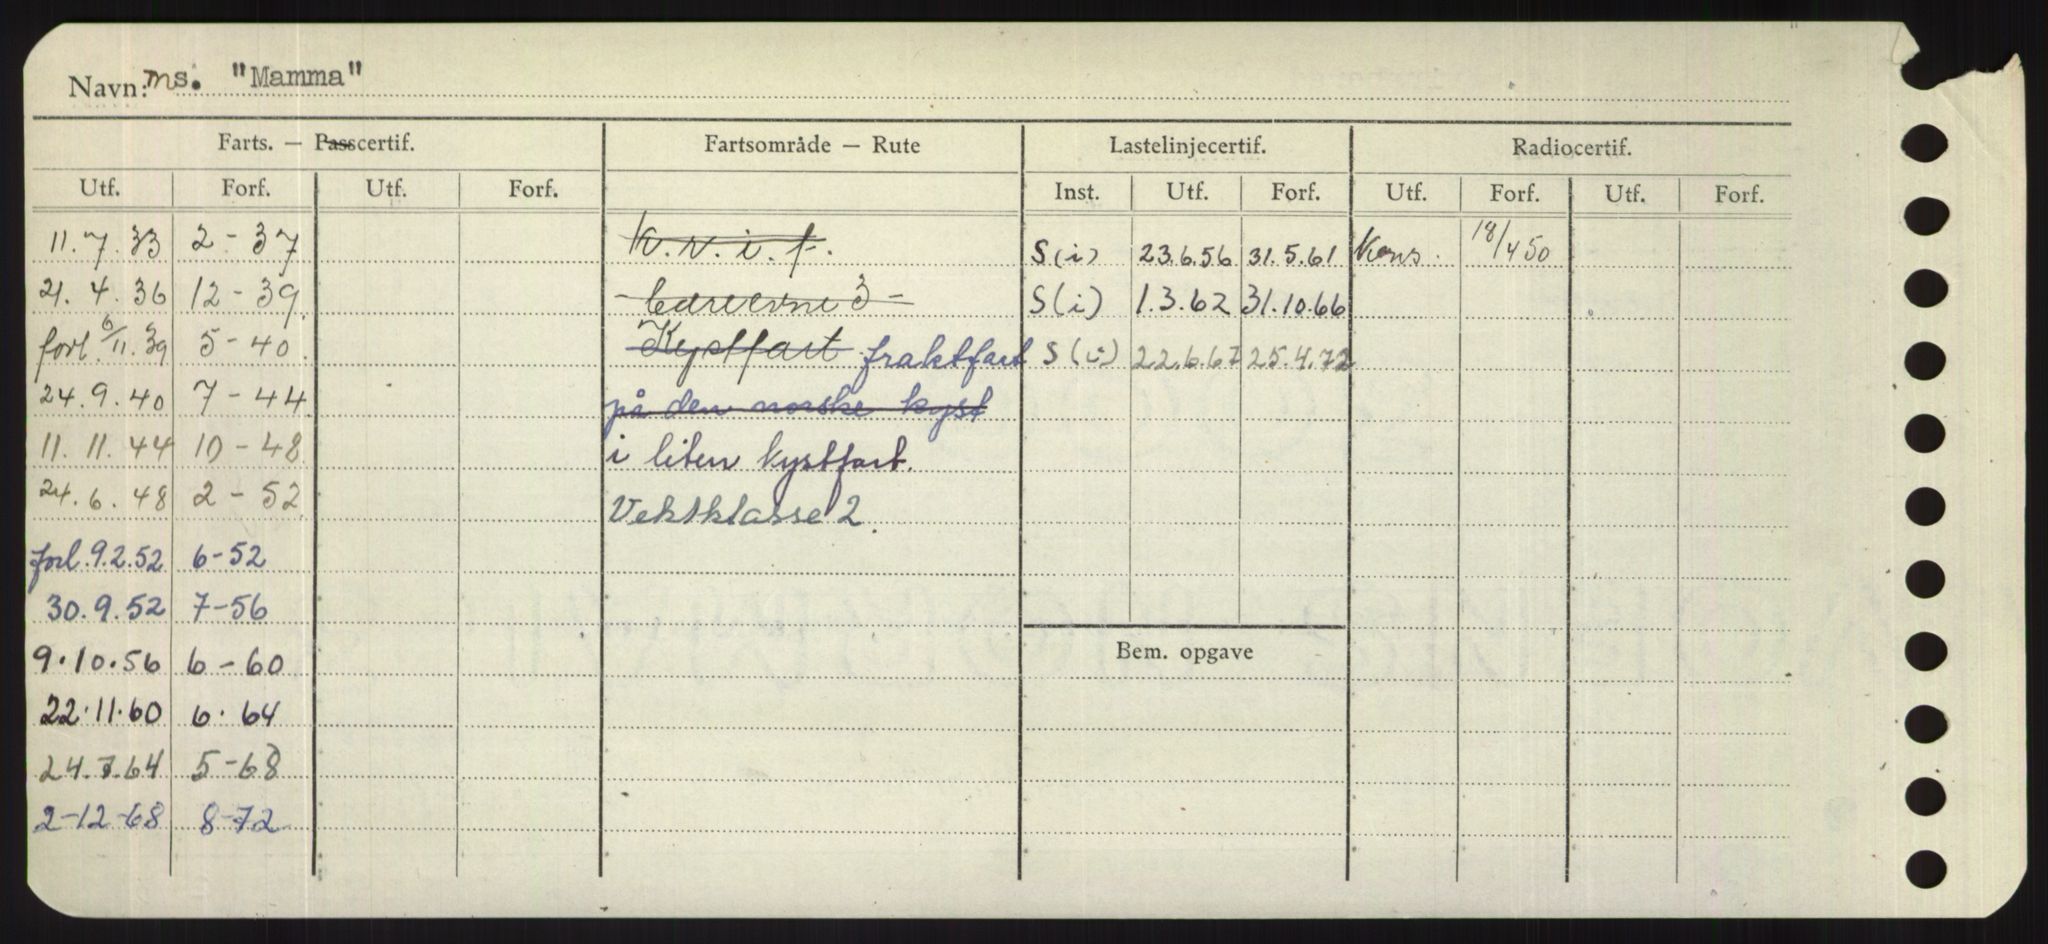 Navn: ms. "Mamma"
Farts. — Passcertif. Fartsområde — Rute Lastelinjecertif. Radiocertif.
Utf. Forf. Utf. Forf. Inst. Utf. Forf. Utf. Forf. Utf. Forf.
11.7.33 2-37 K.v.i.f. S(i) 23.6.56 31.5.61 Kons. 18/4 50
21.4.36 12-39 Bæreevne 3 S(i) 1.3.62 31.10.66
forl. 6/11.39 5-40 Kystfart fraktfart S(i) 22.6.67 25.4.72
24.9.40 7-44 på den norske kyst
11.11.44 10-48 i liten kystfart.
24.6.48 2-52 Vektklasse 2.
forl. 9.2.52 6-52
30.9.52 7-56
9.10.56 6-60 Bem. opgave
22.11.60 6.64
24.7.64 5-68
2-12-68 8-72